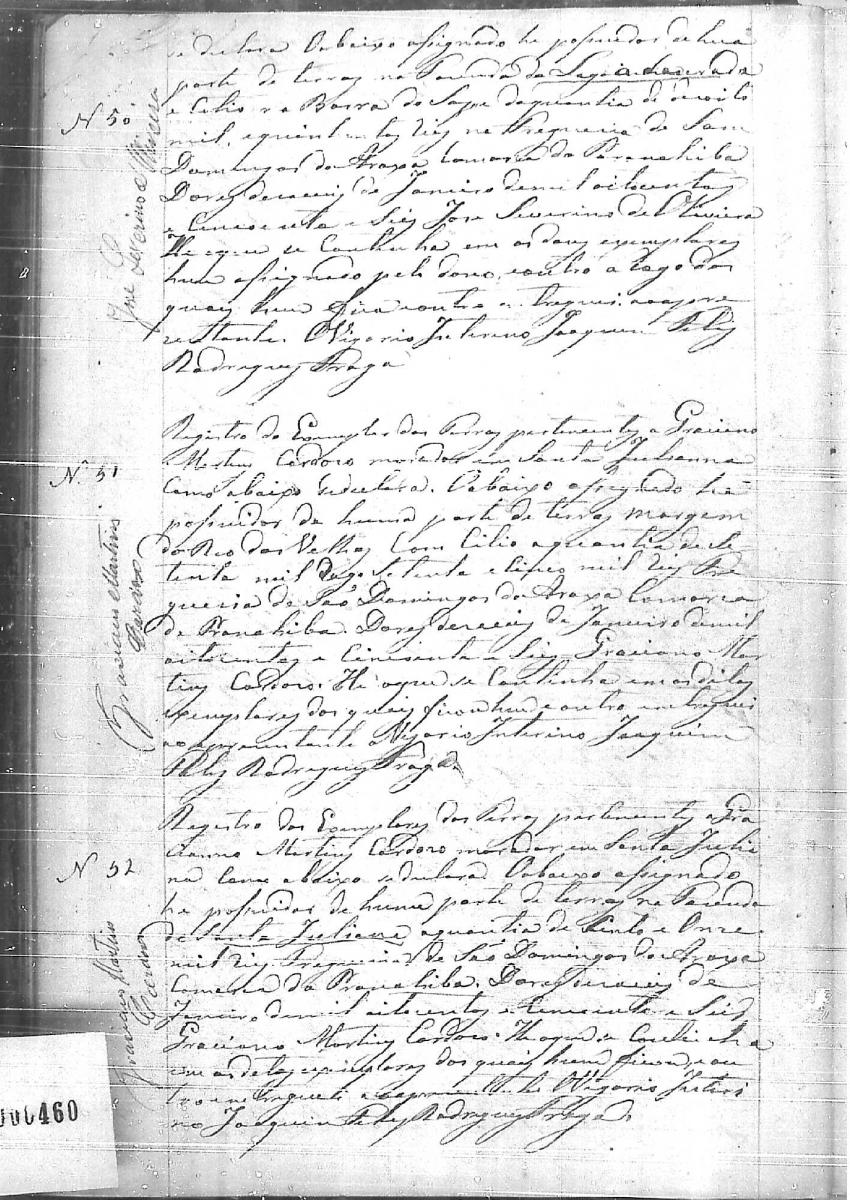 se declara Oabaixo assignado he possuidor de huā
parte de terras na Fazenda da Lagoa
e Citio na Barra do Sape da quantia de dezoito
Nº 50
mil, equinhentos reis na Freguezia de Sam
Domingos do Araxa Comarca do Paranahiba
Dores dezaceis de Janeiro demil oitocentos
e Cincoenta e Seis Jose Severino de Oliveira
He oque se Continha em os dous exemplares
hum assignado pelo dono, eoutro a rogo dos
quais hum fica eoutro entreguei ao apre
zentante. O Vigario Interino Joaquim Felis
Rodrigues Fraga
Jose Severino de Oliveira
Registro do Exemplar das Terras pertencentes a Graciano
Nº 51
Martins Cardozo morador em Santa Julianna
Como abaixo sedeclara. Oabaixo assignado he
possuidor de huma parte de terras margem
do Rio das Velhas Com Citio aquantia de Se
tenta mil digo Setenta e Cinco mil reis Fre
guezia de São Domingos do Araxa Comarca
de Pranahiba. Dores dezaceis de Janeiro demil
oitocentos e Cincoenta e Seis Graciano Mar
tins Cardozo. He oque se Continha em os ditos
exemplares dos quais ficou hum e outro entreguei
ao aprezentante o Vigario Interino Joaquim
Felis Rodrigues Fraga.
Graciano Martins
Cardozo
Registro dos Exemplares das Terras pertencentes a Gra
cianno Martins Cardozo morador em Santa Julia
Nº 52
na Como abaixo sedeclara Oabaixo assignado
he possuidor de huma parte de terras na Fazenda
de Santa Juliana aquantia de Cento e Onze
mil reis Freguezia de São Domingos do Araxa
Comarca do Pranahiba. Dores dezaceis de
Janeiro demil oitocentos e Cincoenta e Seis
Graciano Martins Cardozo. He oque se Continha
em os ditos exemplares dos quais hum ficou, e ou
tro entreguei ao aprezentante. O Vigario Interi
no Joaquim Felis Rodrigues Fraga.
Graciano Martins
Cardozo
000460